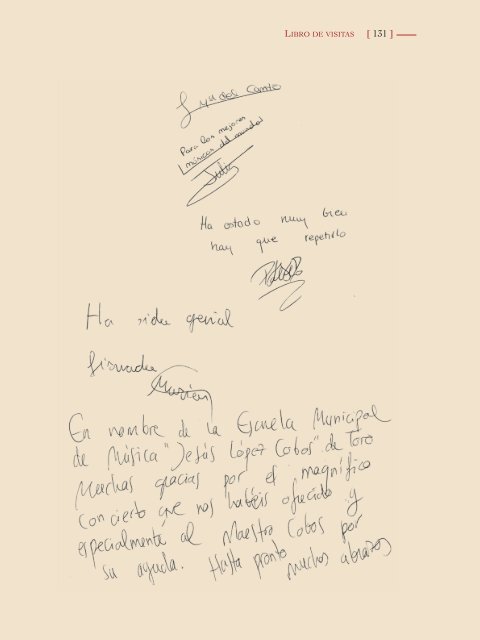 LIBRO DE VISITAS [ 131 ]
Para los mejores
músicos del mundo!
Ha estado muy bien
hay que repetirlo
Ha sido genial
firmado
En nombre de la Escuela Municipal
de Música "Jesús López Cobos" de Toro
Muchas gracias por el magnífico
concierto que nos habéis ofrecido y
especialmente al Maestro Cobos por
su ayuda. Hasta pronto
muchos abrazos